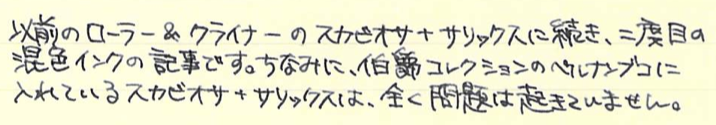 以前のローラー&クライナーのスカビオサ+サリックスに続き、二度目の
混色インクの記事です。ちなみに、伯爵コレクションのペルナンブコに
入れているスカビオサ+サリックスは、全く問題は起きていません。